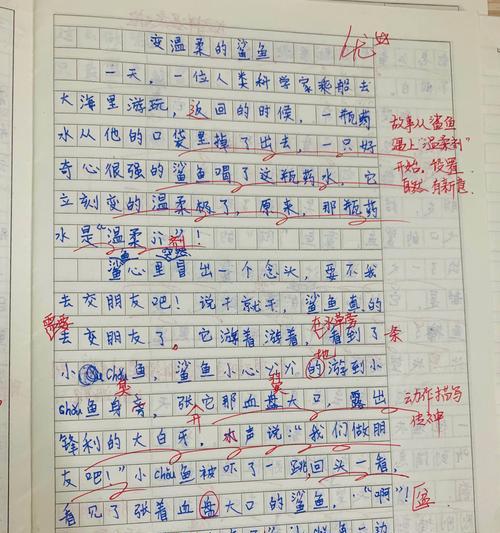 变温柔的鲨鱼
优
一天，一位人类科学家乘船去
大海里游玩，返回的时候，一瓶药
水从他的口袋里掉了出去，一只好
奇心很强的鲨鱼喝了这瓶药水，它
立刻变的温柔极了，原来，那瓶药
水是“温柔剂！
故事从鲨鱼
遇上“温柔剂”
开始，设置
自然有新意
鱼 突然
鲨心里冒出一个念头，要不我
去交朋友吧！说干就干，鲨鱼真的
去交朋友了。它游着游着，看到了条
在水草旁
小chǒu鱼，鲨鱼小心yìyì的游到小
地
丑 翼
chǒu鱼身旁，张它那血盘大口，露出
开
动作描写
传神
锋利的大白牙，大声说：“我们做朋
友吧！”小chǒu鱼被吓了一跳，回头一看，
看见了张着血盘大口的鲨鱼，“啊”！
盆